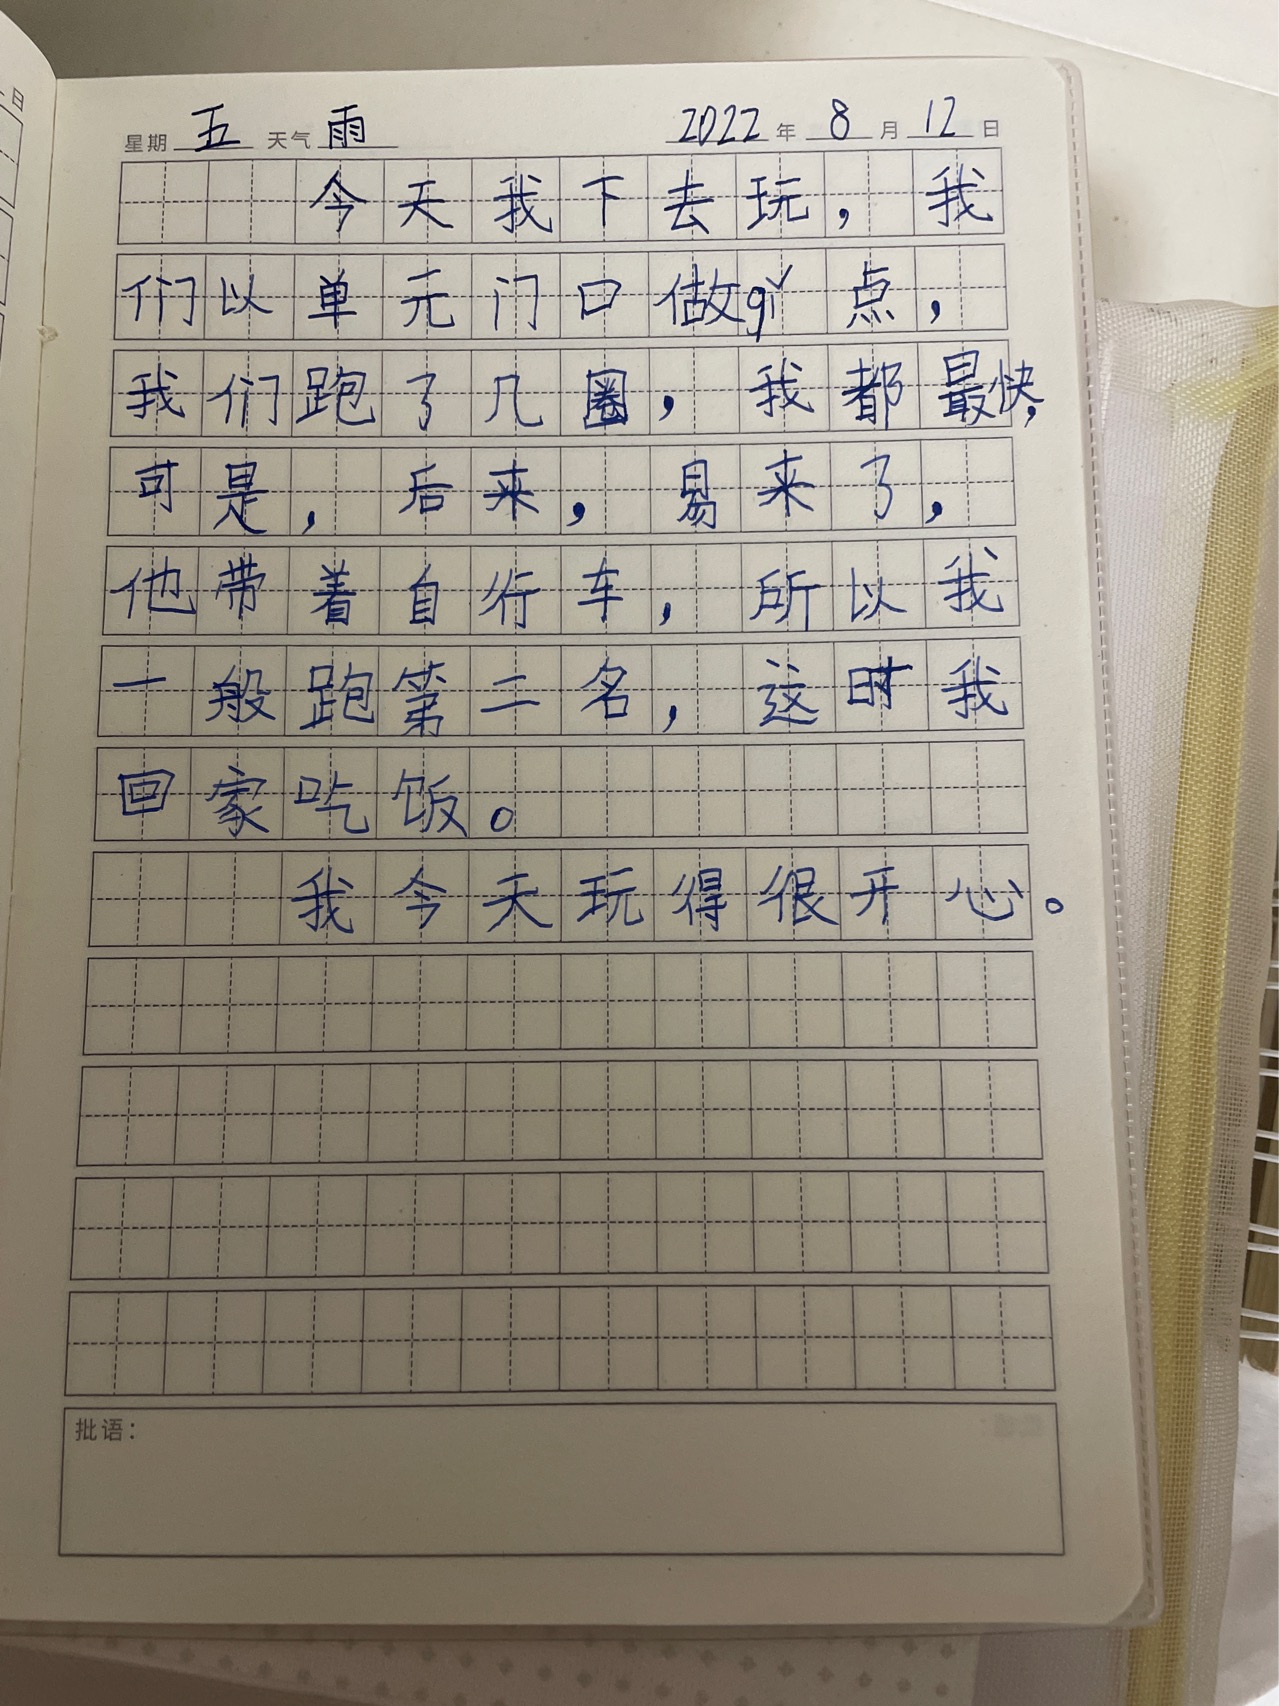 日
星期 五 天气 雨 2022 年 8 月 12 日
今天我下去玩，我
们以单元门口做qǐ点，
我们跑了几圈，我都最快，
可是，后来，易来了，
他带着自行车，所以我
一般跑第二名，这时我
回家吃饭。
我今天玩得很开心。
批语：